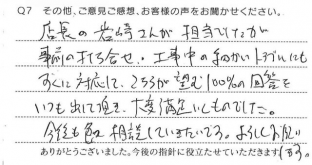 Q7 その他、ご意見ご感想、お客様の声をお聞かせください。
店長の岩崎さんが担当でしたが
事前の打ち合せ、工事中の細かいトラブルにも
すぐに対応して、こちらが望む100%の回答を
いつも出して頂き、大変満足いくものでした。
今後も色々相談していきたいです。よろしくお願い
ありがとうございました。今後の指針に役立たせていただきます。
します。